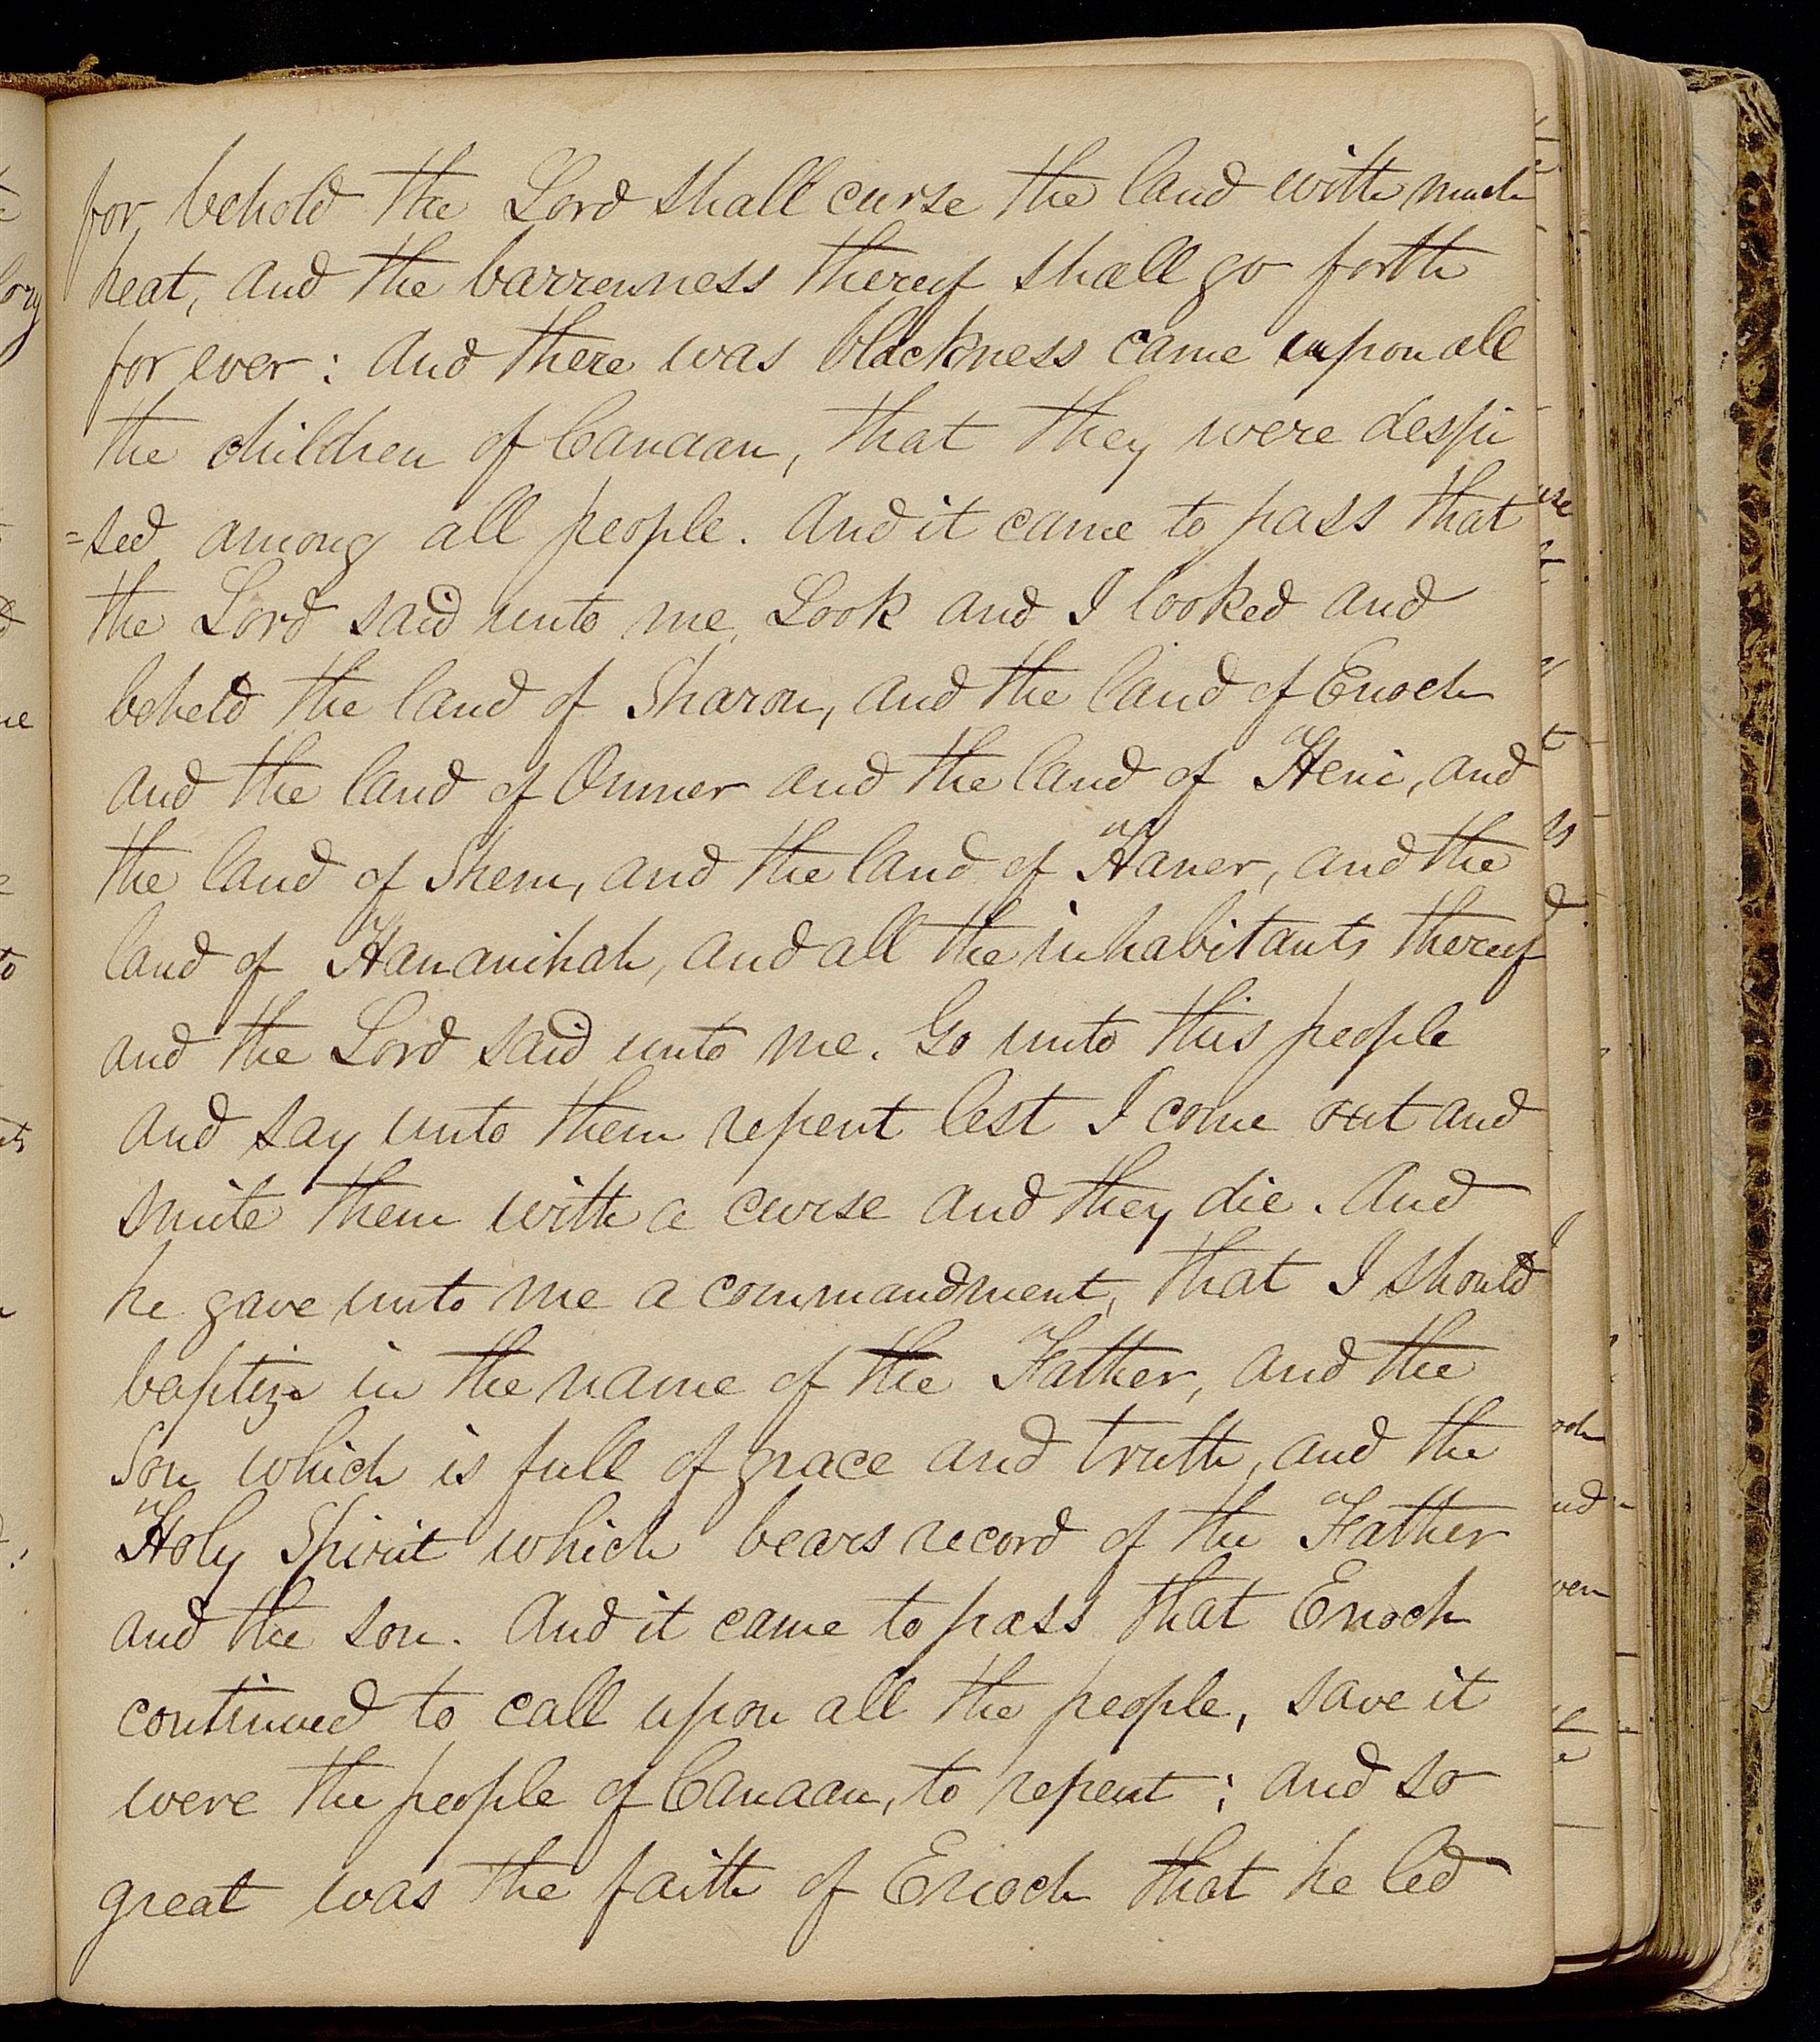 for behold the Lord shall curse the land with much
heat, and the barrenness thereof shall go forth
for ever: and there was blackness came upon all
the children of Canaan, that they were despi
=sed among all people. And it came to pass that
the Lord said unto me, Look and I looked and
beheld the land of Sharon, and the land of Enoch
and the land of Omner and the land of Heni, and
the land of Shem, and the land of Haner, and the
land of Hananihah, and all the inhabitants thereof
and the Lord said unto me. Go unto this people
and say unto them repent lest I come out and
smite them with a curse and they die. And
he gave unto me a commandment, that I should
baptize in the name of the Father, and the
Son which is full of grace and truth, and the
Holy Spirit which bears record of the Father
and the son. And it came to pass that Enoch
continued to call upon all the people, save it
were the people of Canaan, to repent; and so
great was the faith of Enoch that he led